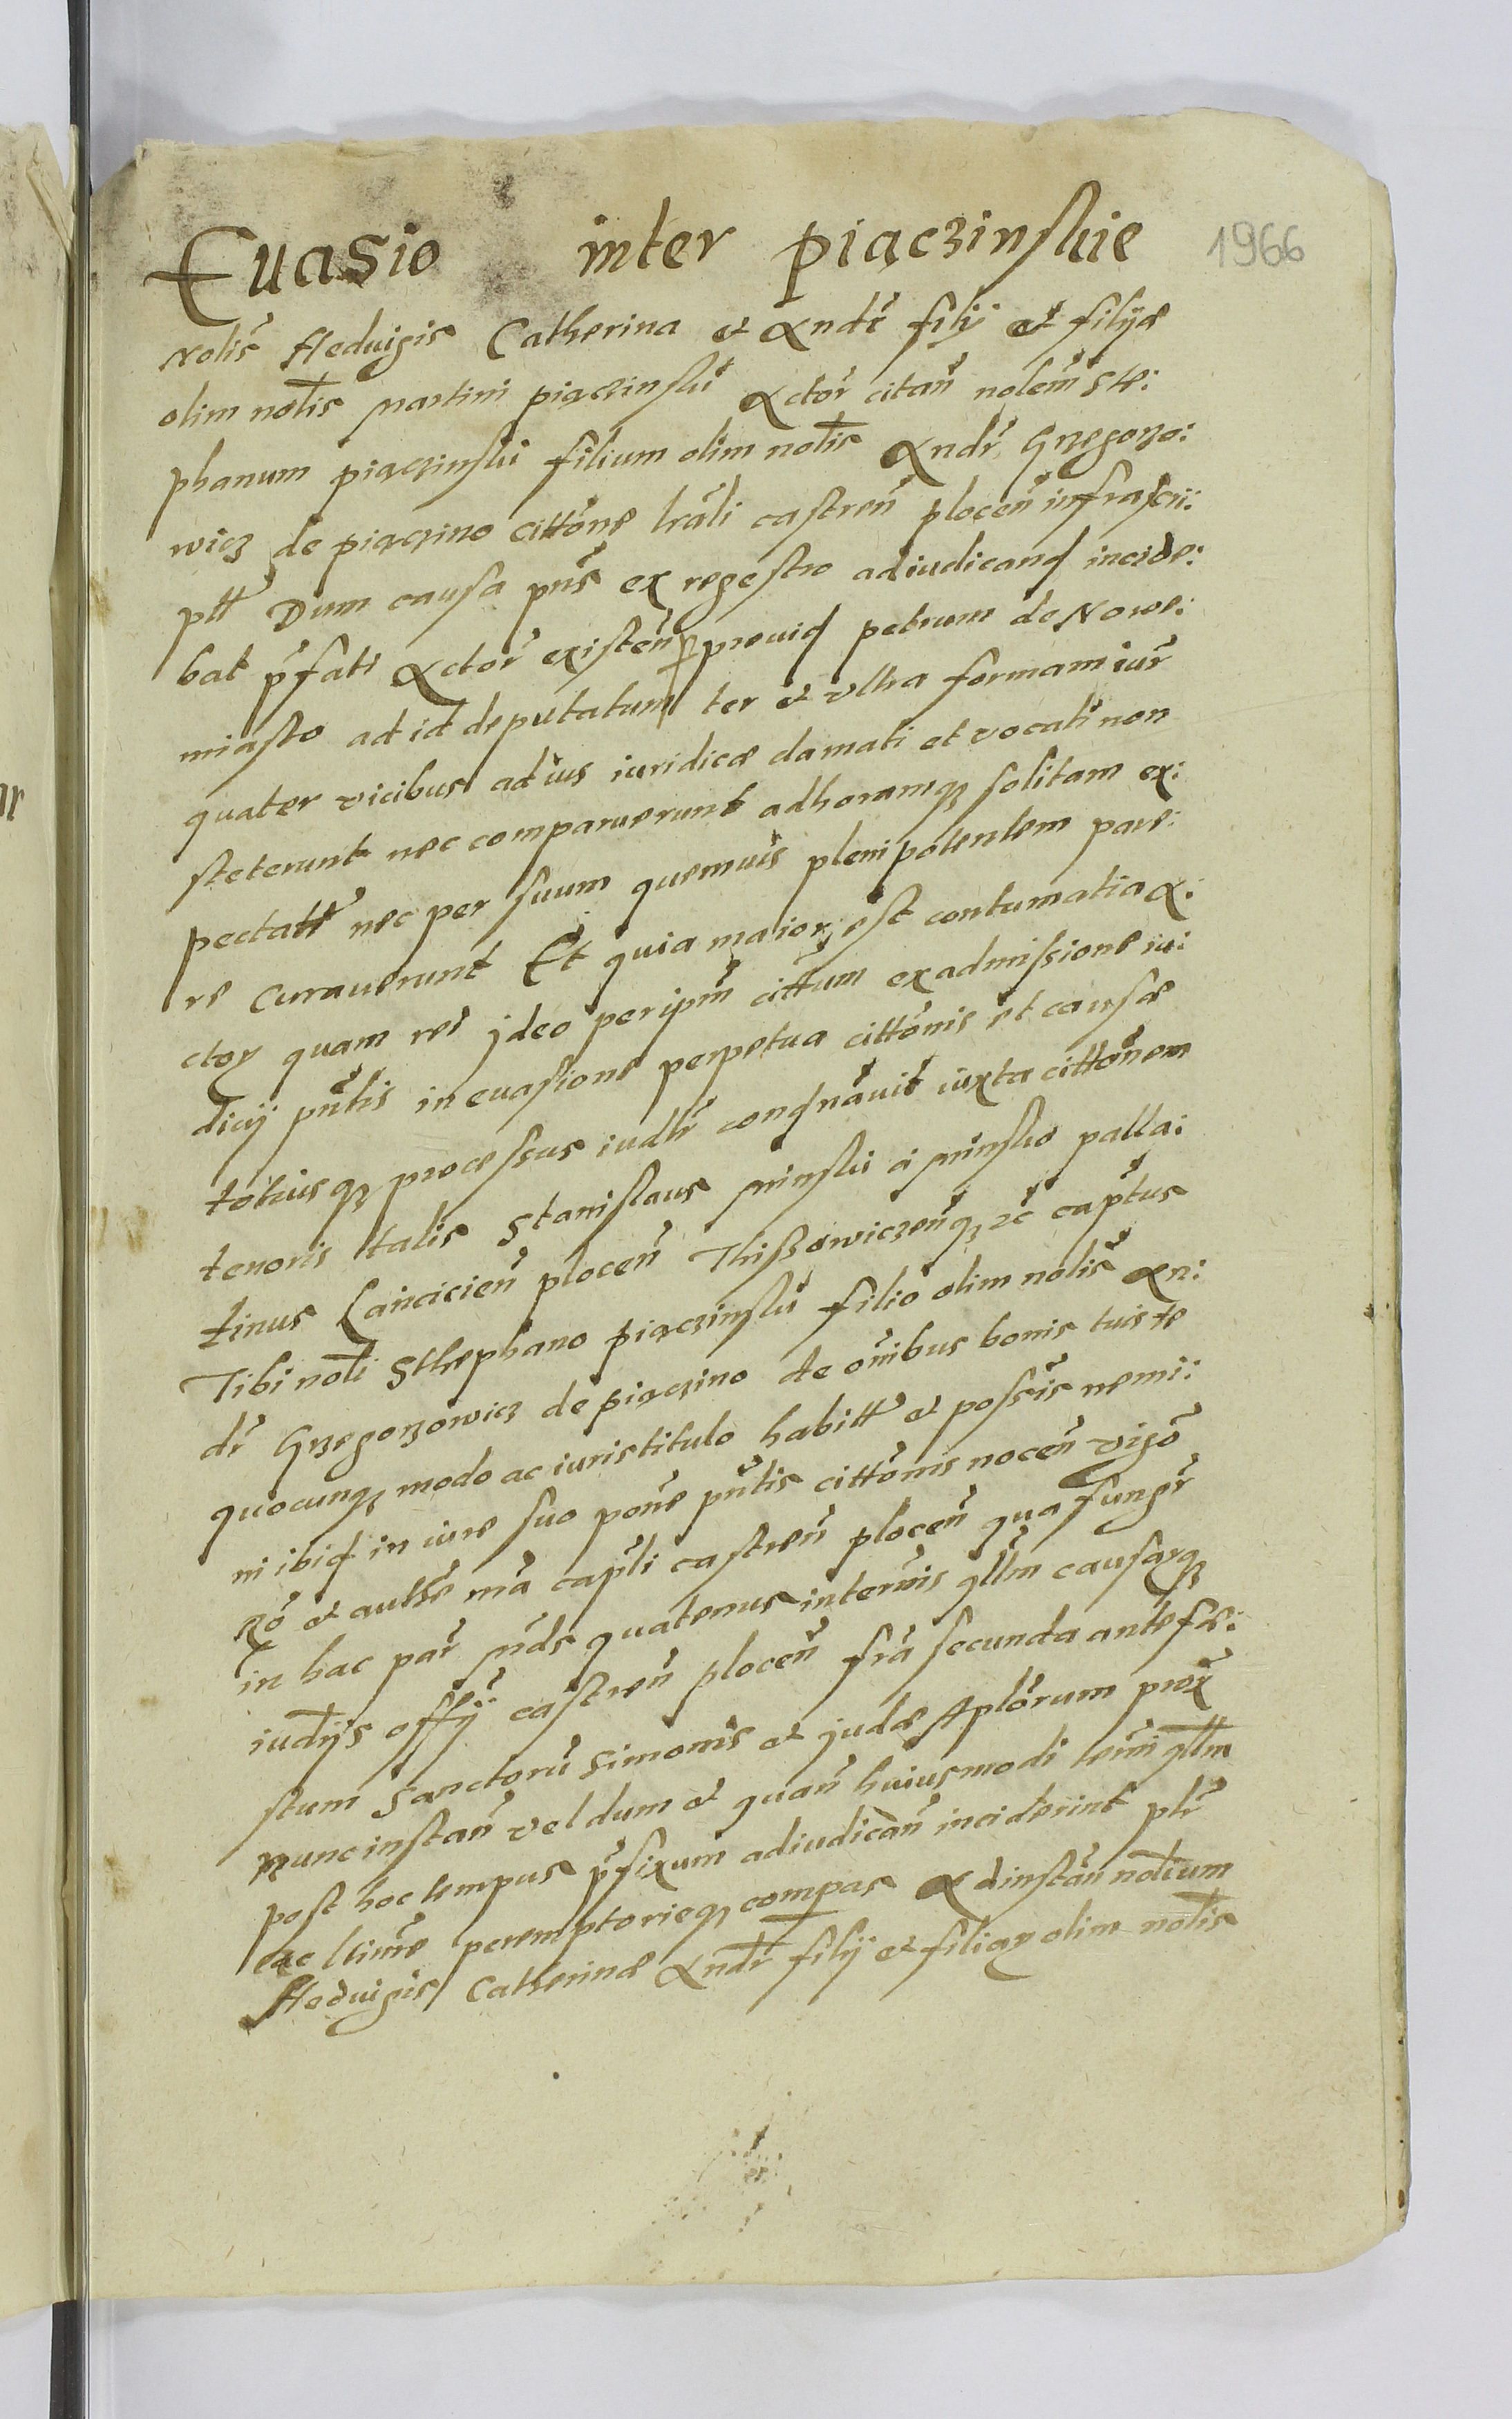 Euasio inter piączinskie 1966
Nolis̃ Heduigis Catherina et Andr̃ filij et filijæ
olim nolis̃ Martini piączinski Actor̃ citañ nolem̃ Ste:
phanum piączinski filium olim nolis̃ Andr̃ Grzegorzo:
wicz de piączino cittõne lrãli castreñ ploceñ infrascri:
ptt Dum causa pñs ex regestro adiudicand incide:
bat p̃fati Actor̃ existeñ p prouid petrum de Nowe:
miasto ad id deputatum ter et vltra formam iur̃
quater vicibus ad ius iuridicæ clamati et vocati non
steterunt nec comparuerunt adhoramq solitam ex:
pectatt nec per suum quemuis plenipotentem pare:
re curauerunt Et quia maior est contumatia A:
ctor quam rei jdeo per ipm̃ cittum ex admissione iu:
dicij pñtis in euasione perpetua cittõnis et causæ
totiusq processus iudlr̃ condnãuit iuxta cittõnem
tenoris talis Stanislaus Minski a Minsko palla:
tinus Lancicieñ ploceñ Thiszowiczeñq zc̃ cap̃tus
Tibi noli Sthephano piączinski filio olim nolis̃ An:
dr̃ Grzegorzowicz de piączino de oñibus bonis tuis te
quocunq modo ac iuris titulo habitt et possis̃ nemi:
ni ibid in iure suo poñe pñtis cittõnis noceñ vigõ
Rõ et authe mã capñli castreñ ploceñ qua fungr̃
in hac par̃ mds quatenus in termis̃ qllm̃ causarq
iudijs offij castreñ ploceñ fr̃a secunda ante fe:
stum Sanctorũ Simonis et judæ Aplõrum prox̃
nunc instañ vel dum et quañ huiusmodi termi qllm
post hoc tempus p̃fixum adiudicañ inciderint plr̃
ac ltim̃e peremptorieq compas Ad instañ nolium
Heduigis Catherinæ Andr̃ filij et filiar olim nolis̃